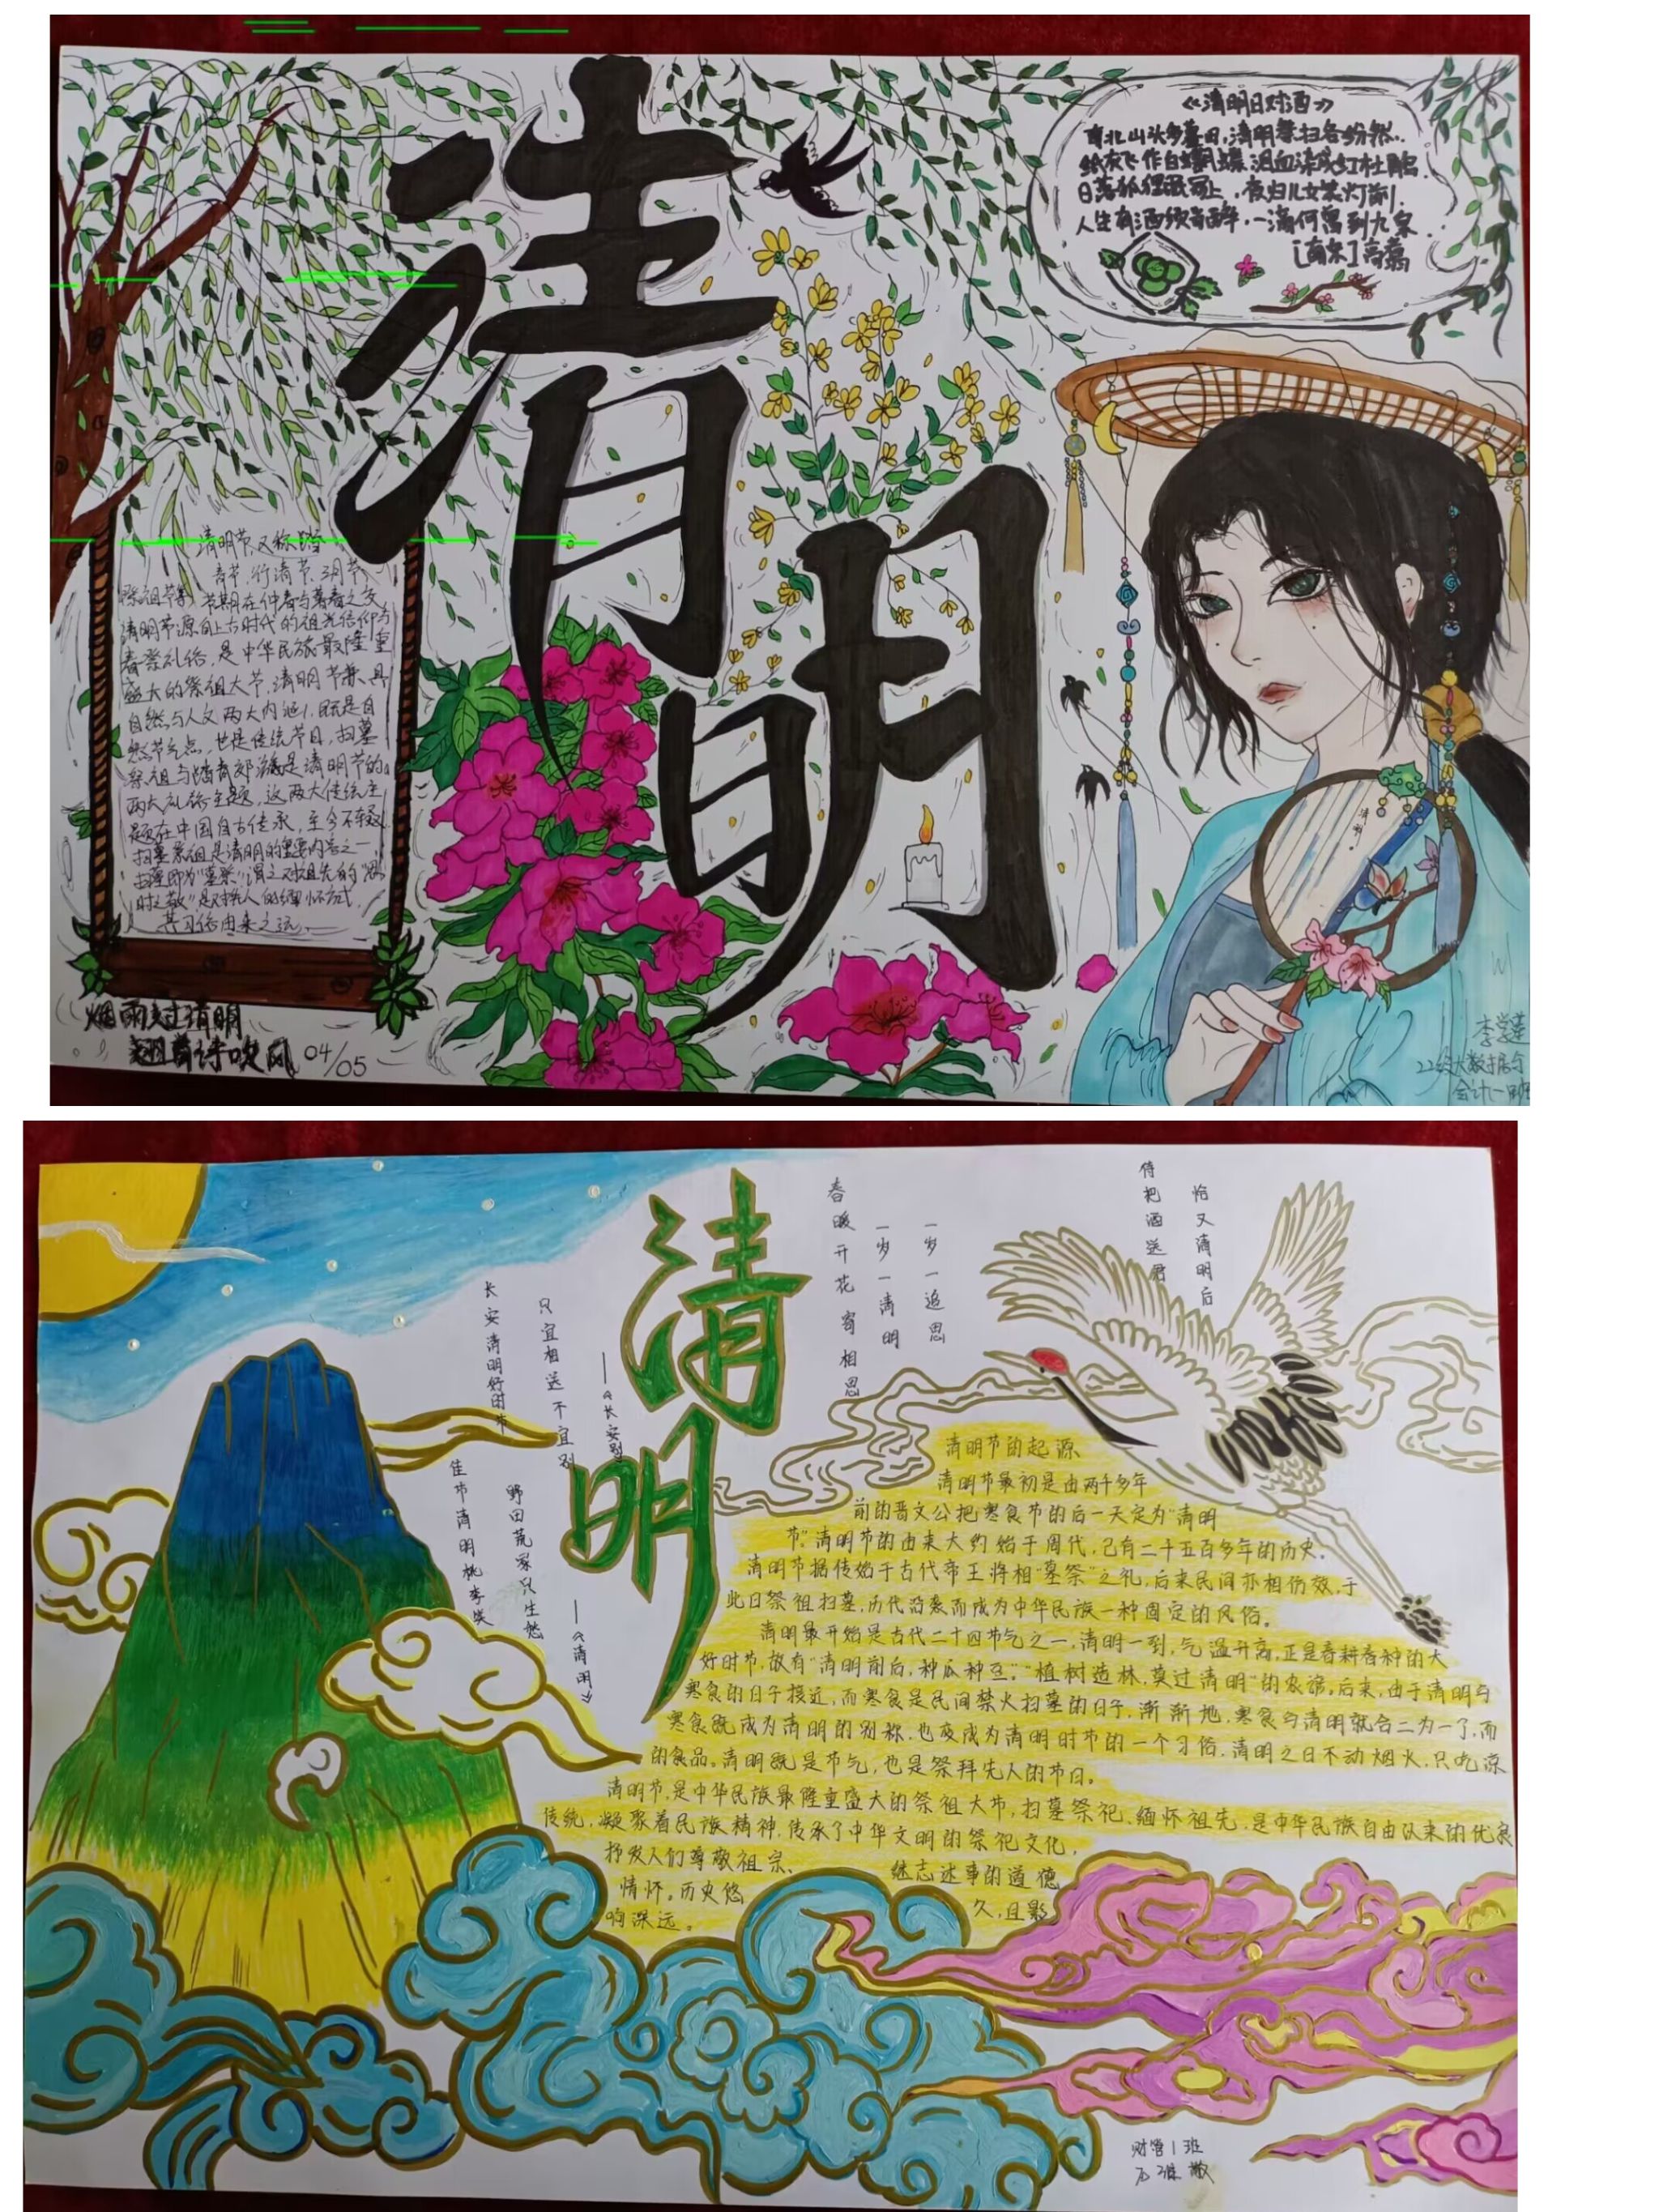 清明
《清明日对酒》
南北山头多墓田,清明祭扫各纷然.
纸灰飞作白蝴蝶,泪血染成红杜鹃.
日落狐狸眠冢上,夜归儿女笑灯前.
人生有酒须当醉,一滴何曾到九泉.
[南宋]高翥
清明节,又称踏
青节、行清节、三月节、
祭祖节等,节期在仲春与暮春之交
清明节源自上古时代的祖先信仰与
春祭礼俗,是中华民族最隆重
盛大的祭祖大节,清明节兼具
自然与人文两大内涵,既是自
然节气点,也是传统节日,扫墓
祭祖与踏青郊游是清明节的
两大礼俗主题,这两大传统主
题在中国自古传承,至今不辍.
扫墓祭祖是清明的重要内容之一,
扫墓即为"墓祭"谓之对祖先的"思
时之敬"是对先人的缅怀方式.
其习俗由来之远.
烟雨过清明
诗吹风 04/05
22级大数据与
会计一班
清明
长安清明好时节
只宜相送不宜别
——《长安别》
佳节清明桃李笑
野田荒冢只生愁
——《清明》
春暖开花寄相思
一岁一清明
一岁一追思
待把酒送君
恰又清明后
清明节的起源
清明节最初是由两千多年
前的晋文公把寒食节的后一天定为"清明
节".清明节的由来大约始于周代,已有二千五百多年的历史.
清明节据传始于古代帝王将相"墓祭"之礼,后来民间亦相仿效,于
此日祭祖扫墓,历代沿袭而成为中华民族一种固定的风俗。
清明最开始是古代二十四节气之一,清明一到,气温升高,正是春耕春种的大
好时节,故有"清明前后,种瓜种豆"."植树造林,莫过清明"的农谚。后来,由于清明与
寒食的日子接近,而寒食是民间禁火扫墓的日子,渐渐地,寒食与清明就合二为一了,而
寒食既成为清明的别称,也变成为清明时节的一个习俗,清明之日不动烟火,只吃凉
的食品。清明既是节气,也是祭拜先人的节日。
清明节,是中华民族最隆重盛大的祭祖大节,扫墓祭祀、缅怀祖先,是中华民族自由以来的优良
传统,凝聚着民族精神,传承了中华文明的祭祀文化,
抒发人们尊敬祖宗、 继志述事的道德
情怀。历史悠 久,且影
响深远。
财管1班